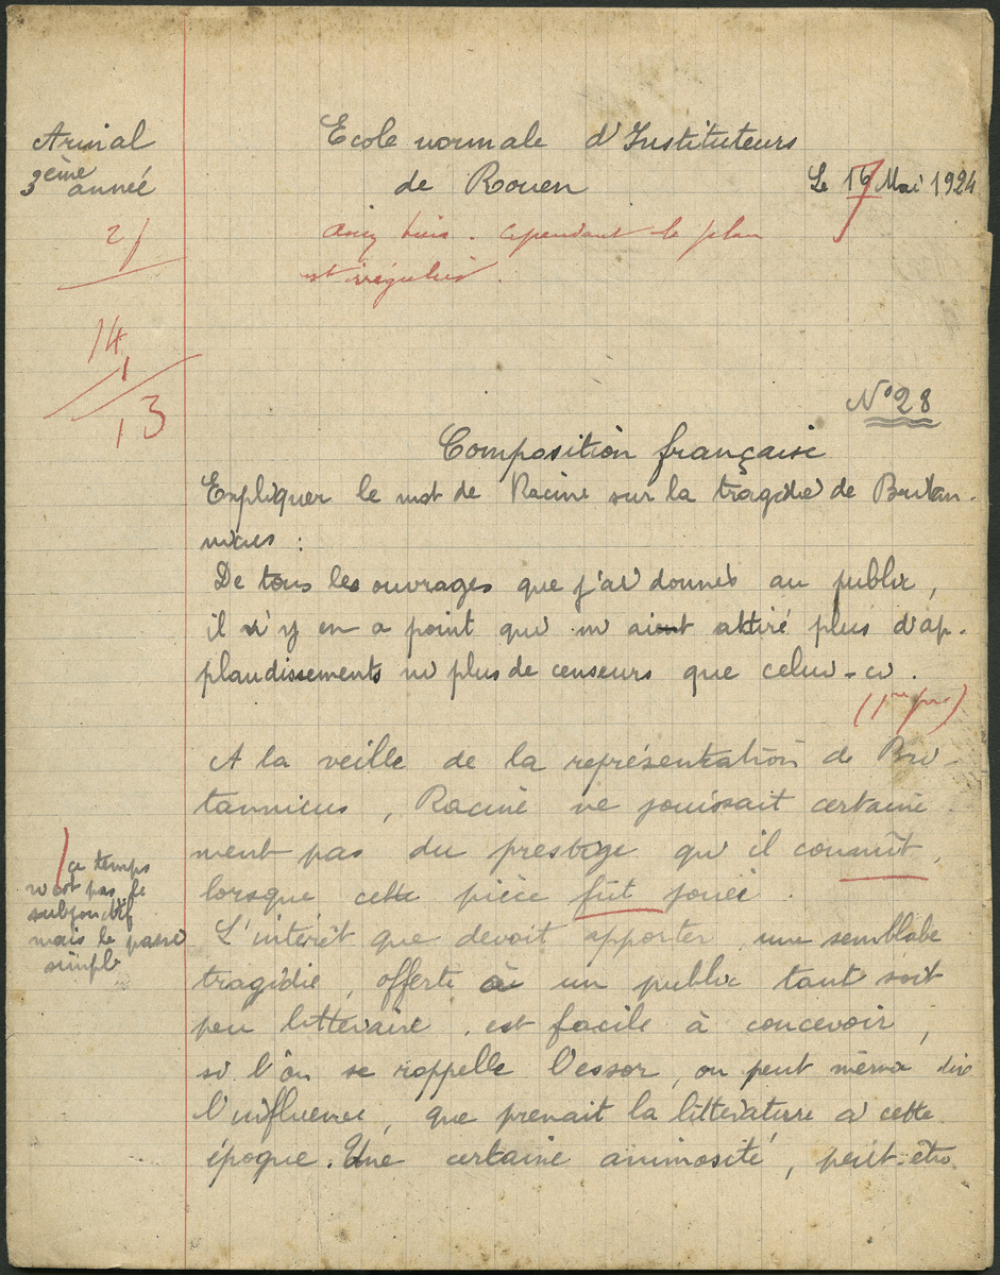 Arinal
3ème année
Ecole normale d'Instituteurs
de Rouen
Le 16 Mai 1924
7
assez bien. cependant le plan
est irrégulier.
14
13
N° 28
Composition française
Expliquer le mot de Racine sur la tragédie de Britan-
nicus :
De tous les ouvrages que j'ai donnés au public,
il n'y en a point qui m'aient attiré plus d'ap-
plaudissements ni plus de censeurs que celui-ci.
A la veille de la représentation de Bri-
tannicus, Racine ne jouissait certaine-
ment pas du prestige qu'il connût,
lorsque cette pièce fût jouée.
ce temps
n'est pas le
subjonctif
mais le passé
simple
L'intérêt que devait apporter une semblable
tragédie, offerte à un public tant soit
peu littéraire, est facile à concevoir,
si l'on se rappelle l'essor, on peut même dire
l'influence, que prenait la littérature à cette
époque. Une certaine animosité, peut-être